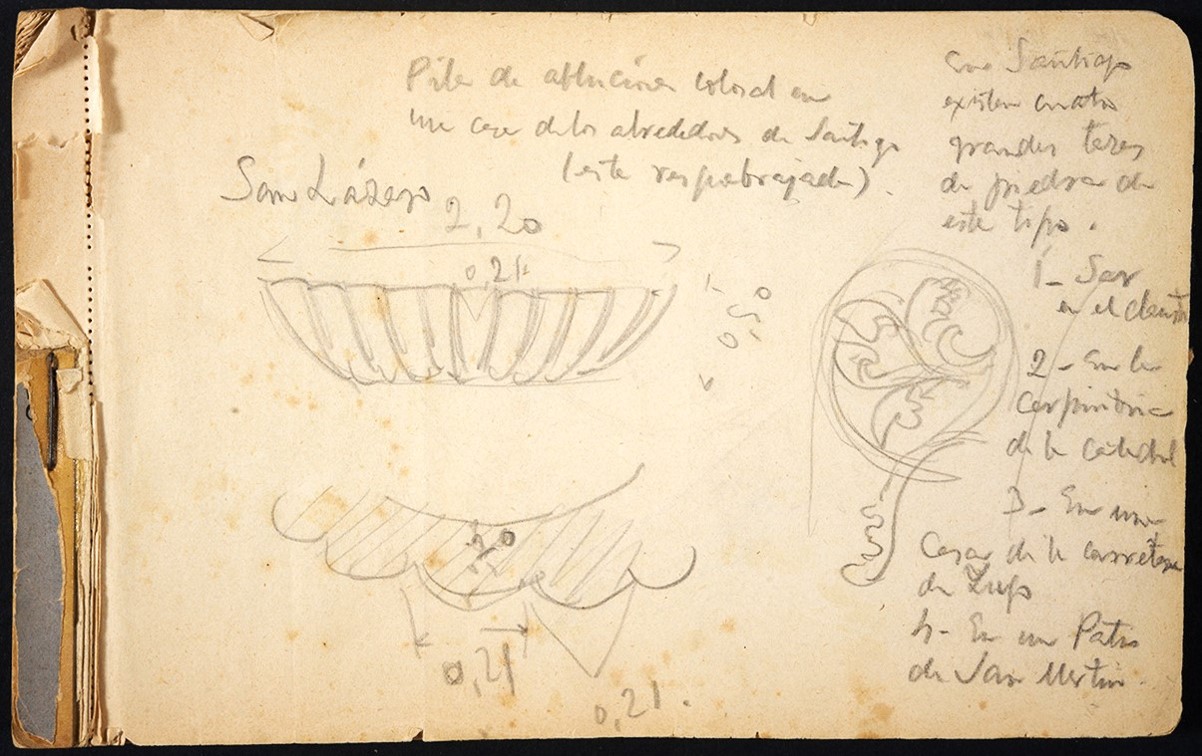 Pila de ablución colosal en
una casa de los alrededores de Santiago
(está resquebrajada).
San Lázaro
2,20
0,21
0,50
0,21
0,21.
en Santiago
existen cuatro
grandes tazas
de piedra de
este tipo.
1- Sar
en el claustro
2- En la
carpintería
de la catedral
3- En una
Casa de la carretera
de Lugo
4- En un Patio
de San Martín.